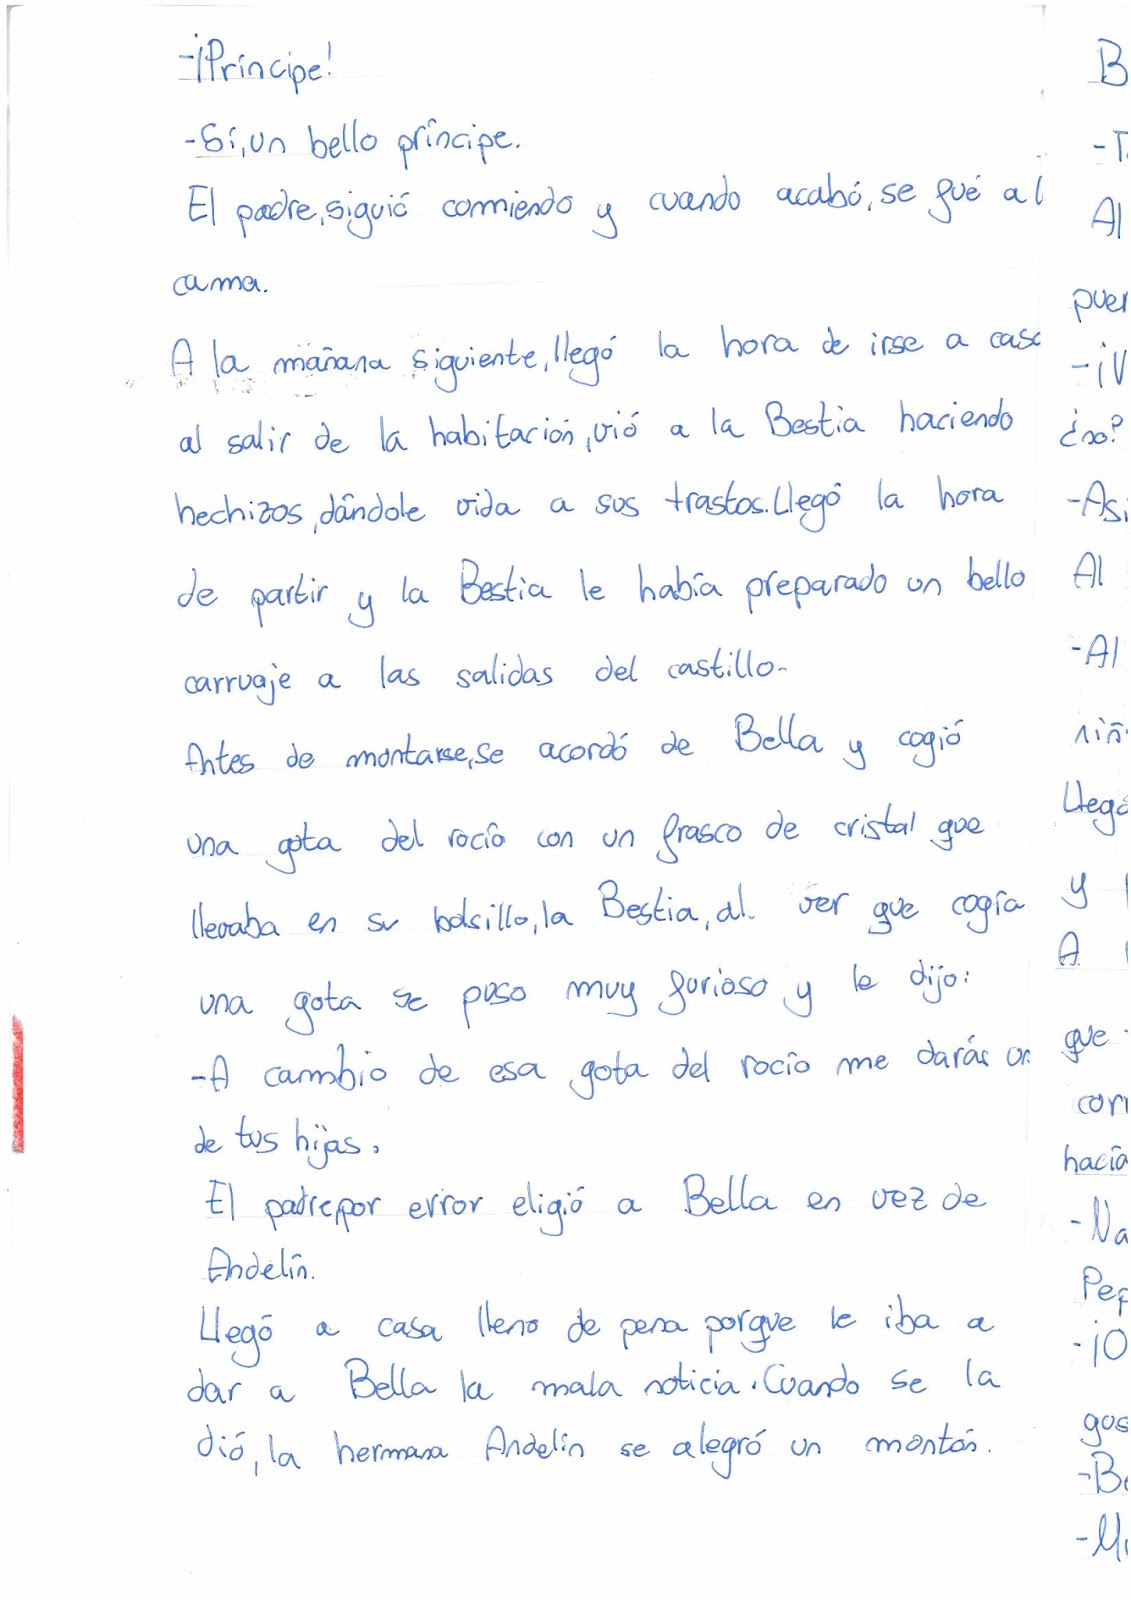 -¡Príncipe!
-Sí, un bello príncipe.
El padre, siguió comiendo y cuando acabó, se fué a l
cama.
A la mañana siguiente, llegó la hora de irse a casa
al salir de la habitación, vió a la Bestia haciendo
hechizos, dándole vida a sus trastos. Llegó la hora
de partir y la Bestia le había preparado un bello
carruaje a las salidas del castillo.
Antes de montarse, se acordó de Bella y cogió
una gota del rocío con un frasco de cristal que
llevaba en su bolsillo, la Bestia, al ver que cogía
una gota se puso muy furioso y le dijo:
-A cambio de esa gota del rocío me darás un
de tus hijas.
El padre, por error eligió a Bella en vez de
Andelín.
Llegó a casa lleno de pena porque le iba a
dar a Bella la mala noticia. Cuando se la
dió, la hermana Andelín se alegró un montón.
B
-T
Al
puer
-¡V
¿no?
-Asi
Al
-Al
niñ
Llegó
y
A
que
corr
hacia
-Na
Pep
-¡O
gos
-Be